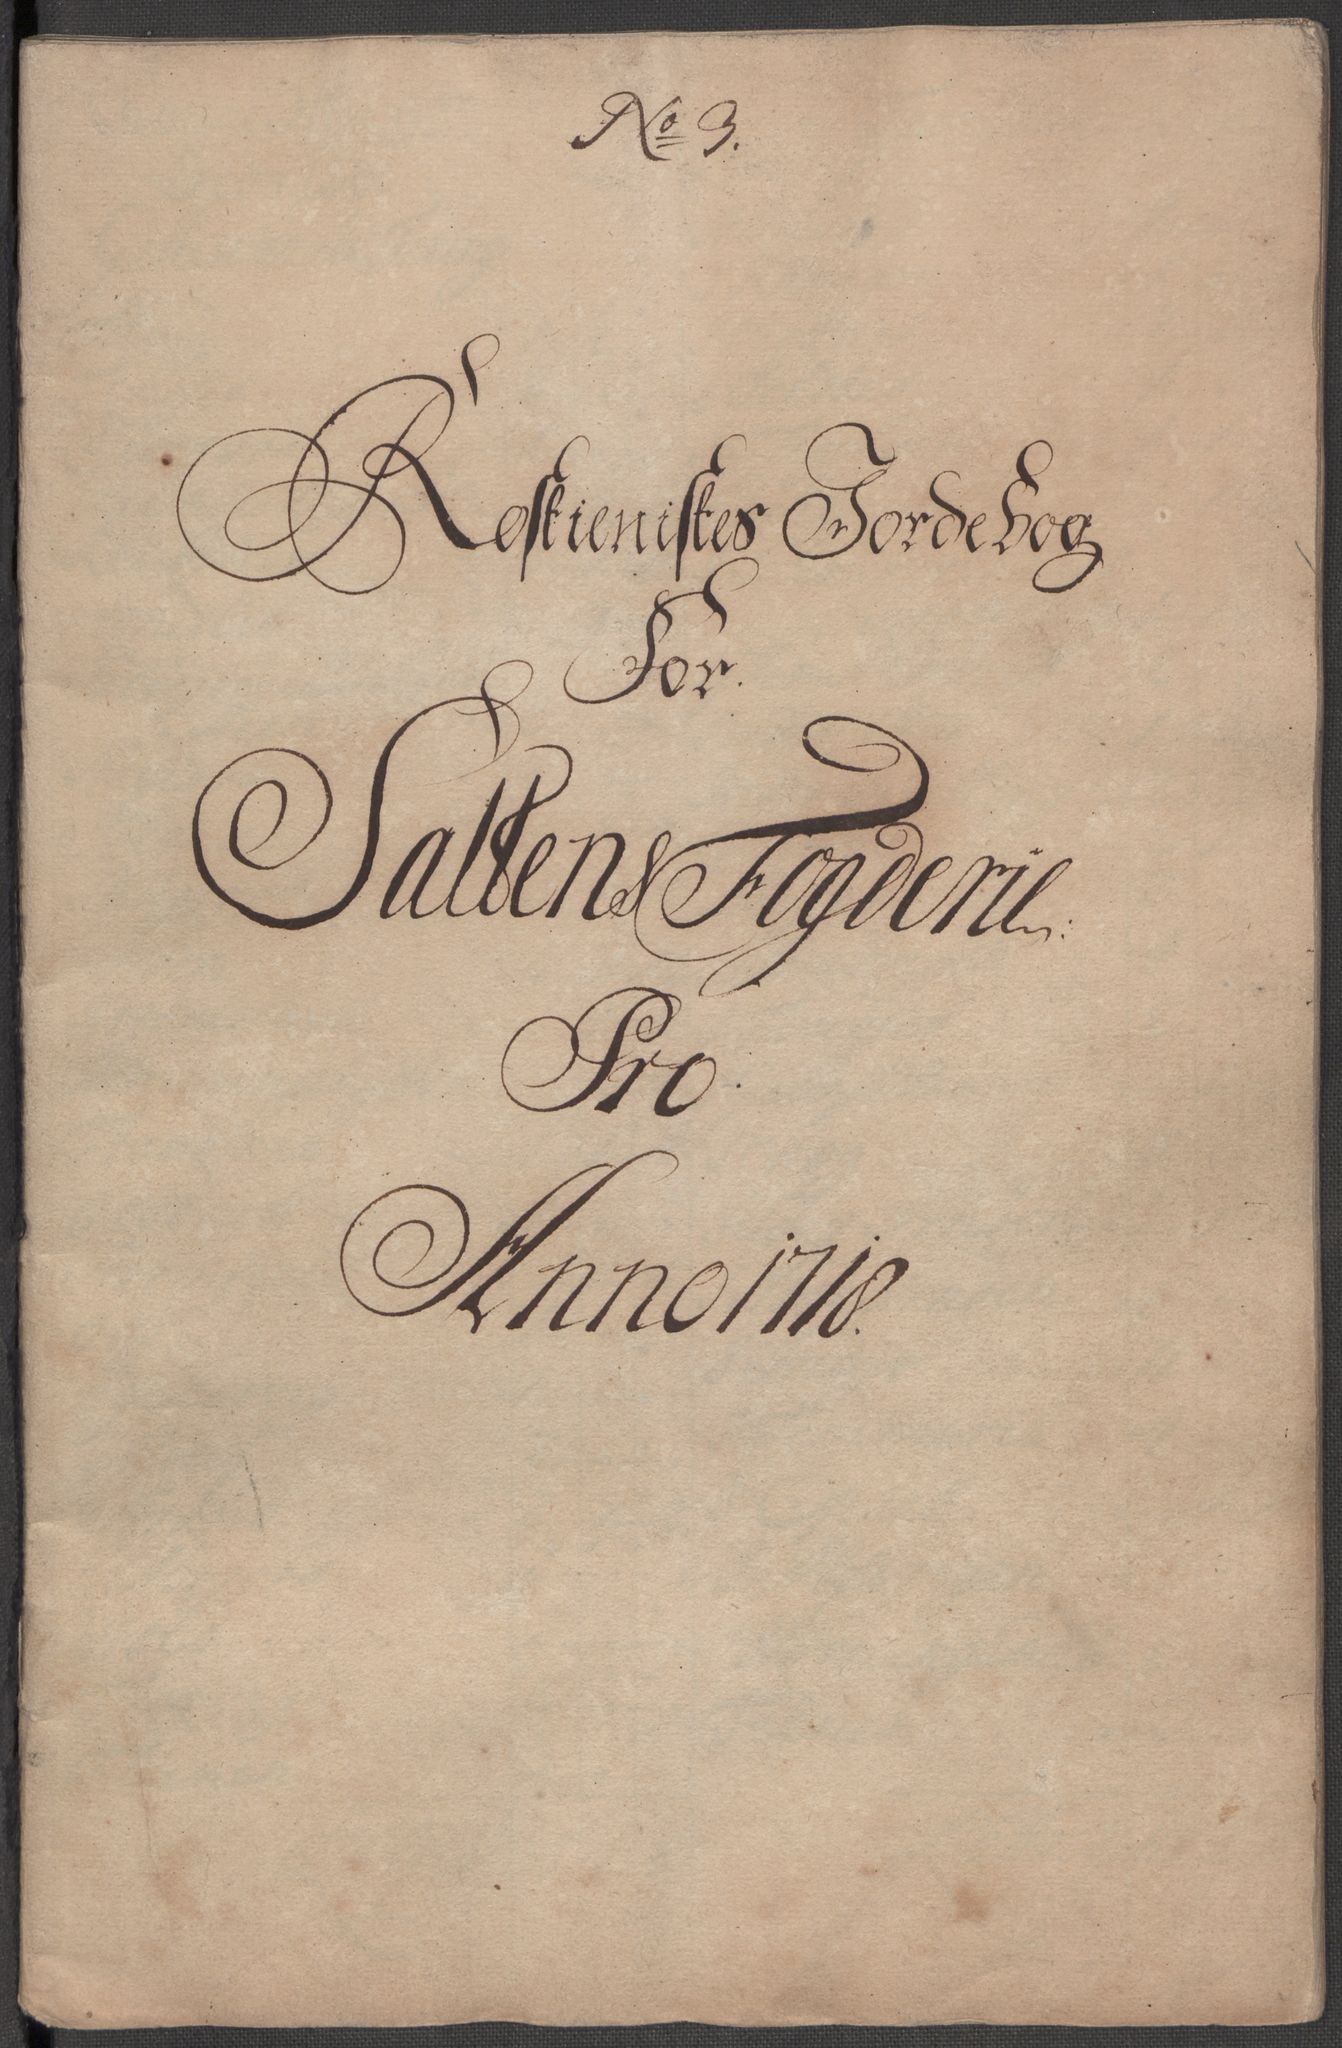 No 3.
Røstienistes Jordebog
For
Saltens Fogderie:
Pro
Anno 1718.